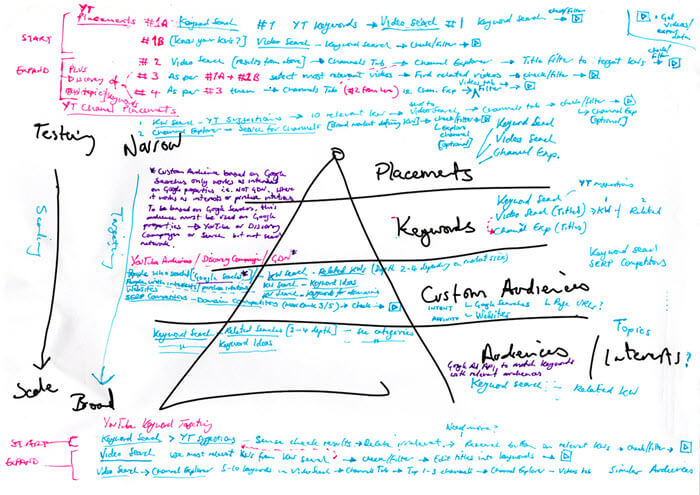 YT
Placements #1A Keyword Search #1 YT Keywords → Video Search #1 Keyword search → check/filter →
START #1B [Know your KWs?] Video Search - Keyword Search → check/filter →
EXPAND #2 Video Search [results from above] → Channels Tab → Channel Explorer → Title filter to target KWs →
PLUS Discovery of #3 As per #1A + #1B select most relevant videos → Find related videos → check/filter →
#4 As per #3 then → Channels Tab (#2 from here) i.e. Chan. Exp → Videos tab / Filter →
YT Channel Placements
1 KW Search - YT Suggestions → 10 relevant KWs → Video Search → Channels tab → check/filter →
2 Channel Explorer → Search for Channels [Broad market defining KWs] → check/filter →
Channel Exp
[optional]
Explore
channel
[optional]
Testing Narrow
Keyword Search
Video Search
Channel Exp.
* Custom Audience based on Google
Searches only works as intended
on Google properties i.e. not GDN, where
it works as interests or purchase intentions
To be based on Google Searches, this
audience must be used on Google
properties → YouTube or Discovery
Campaigns or Search but not search
network.
Placements
Scaling
Targeting
Keywords
Keyword Search
Video Search (Titles) → KW
Channel Exp (Titles)
YT suggestions
Related
YouTube Audiences / Discovery Campaign / GDN *
People who searched (Google Search) * - KW Search - Related KWs (depth 2-4 depending on market size)
People with interests / purchase intentions - KW Search - Keyword Ideas
Websites - KW Search - Keywords for domains
SERP Competitors - Domain Competitors → Check →
Keyword search
SERP Competitors
Custom Audiences
INTENT Google Searches Page URLs?
AFFINITY Websites
Keyword Search - Related Searches [3-4 depth] - see categories
Keyword Ideas
Audiences
Topics
/ Interests?
Google Ads API, to match keywords
with relevant audiences
Keyword search - Related KW
Scale Broad
YouTube Keyword Targeting
Need more?
START Keyword Search > YT Suggestions - Sense check results → Delete irrelevant → button on relevant KWs → check/filter →
EXPAND Video Search use most relevant KWs from KW Search → check/filter → Edit titles into keywords →
Video Search → Channel Explorer 5-10 keywords in Video Search → Channels Tab → Top 1-3 channels → Channel Explorer - Videos tab
Similar Audiences